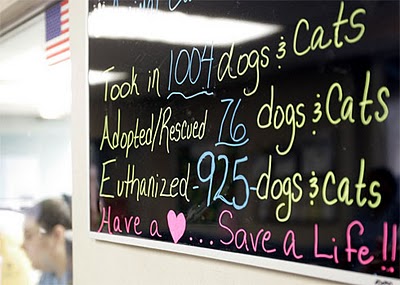 Took in 1004 dogs & Cats
Adopted/Rescued 76 dogs & Cats
Euthanized-925-dogs & Cats
Have a ♥...Save a Life!!